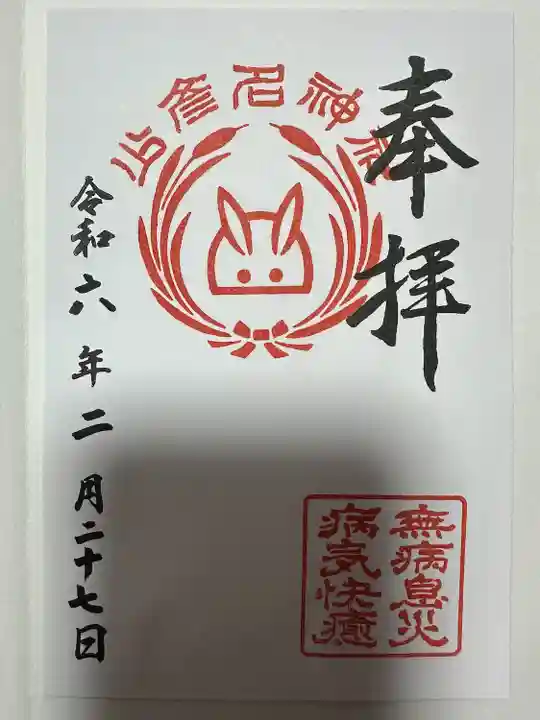 奉拝
少彦名神
無病息災
病気快癒
令和六年二月二十七日